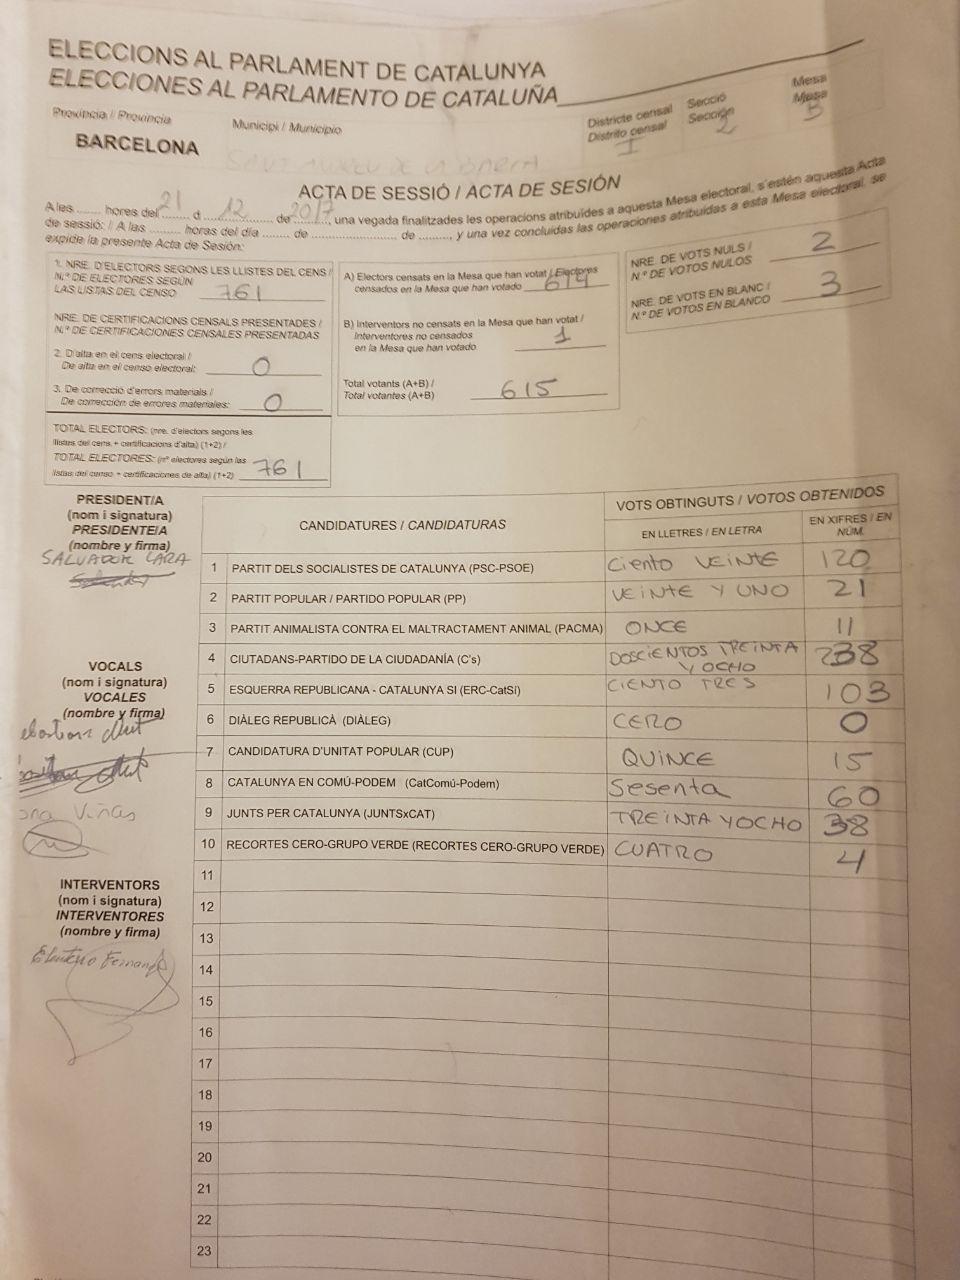 ELECCIONS AL PARLAMENT DE CATALUNYA
ELECCIONES AL PARLAMENTO DE CATALUÑA
Província / Provincia
BARCELONA
Municipi / Municipio
SANT ANDREU DE LA BARCA
Districte censal
Distrito censal
I
Secció
Sección
2
Mesa
Mesa
B
ACTA DE SESSIÓ / ACTA DE SESIÓN
A les ........ hores del 21 d 12 de 2017, una vegada finalitzades les operacions atribuïdes a aquesta Mesa electoral, s'estén aquesta Acta
de sessió: / A las ......... horas del día ........ de ......................... de ........, y una vez concluidas las operaciones atribuidas a esta Mesa electoral, se
expide la presente Acta de Sesión:
1. NRE. D'ELECTORS SEGONS LES LLISTES DEL CENS /
N.º DE ELECTORES SEGÚN
LAS LISTAS DEL CENSO 761
NRE. DE CERTIFICACIONS CENSALS PRESENTADES /
N.º DE CERTIFICACIONES CENSALES PRESENTADAS
2. D'alta en el cens electoral /
De alta en el censo electoral: 0
3. De correcció d'errors materials /
De corrección de errores materiales: 0
TOTAL ELECTORS: (nre. d'electors segons les
llistes del cens + certificacions d'alta) (1+2) /
TOTAL ELECTORES: (nº electores según las
listas del censo + certificaciones de alta) (1+2) 761
A) Electors censats en la Mesa que han votat / Electores
censados en la Mesa que han votado 614
B) Interventors no censats en la Mesa que han votat /
Interventores no censados
en la Mesa que han votado 1
Total votants (A+B) /
Total votantes (A+B) 615
NRE. DE VOTS NULS /
N.º DE VOTOS NULOS 2
NRE. DE VOTS EN BLANC /
N.º DE VOTOS EN BLANCO 3
PRESIDENT/A
(nom i signatura)
PRESIDENTE/A
(nombre y firma)
SALVADOR LARA
VOCALS
(nom i signatura)
VOCALES
(nombre y firma)
Viñas
INTERVENTORS
(nom i signatura)
INTERVENTORES
(nombre y firma)
CANDIDATURES / CANDIDATURAS
VOTS OBTINGUTS / VOTOS OBTENIDOS
EN LLETRES / EN LETRA
EN XIFRES / EN NÚM.
1 PARTIT DELS SOCIALISTES DE CATALUNYA (PSC-PSOE) Ciento VEINTE 120
2 PARTIT POPULAR / PARTIDO POPULAR (PP) VEINTE Y UNO 21
3 PARTIT ANIMALISTA CONTRA EL MALTRACTAMENT ANIMAL (PACMA) ONCE 11
4 CIUTADANS-PARTIDO DE LA CIUDADANÍA (C's) DOSCIENTOS TREINTA Y OCHO 238
5 ESQUERRA REPUBLICANA - CATALUNYA SI (ERC-CatSí) CIENTO TRES 103
6 DIÀLEG REPUBLICÀ (DIÀLEG) CERO 0
7 CANDIDATURA D'UNITAT POPULAR (CUP) QUINCE 15
8 CATALUNYA EN COMÚ-PODEM (CatComú-Podem) Sesenta 60
9 JUNTS PER CATALUNYA (JUNTSxCAT) TREINTA Y OCHO 38
10 RECORTES CERO-GRUPO VERDE (RECORTES CERO-GRUPO VERDE) CUATRO 4
11
12
13
14
15
16
17
18
19
20
21
22
23